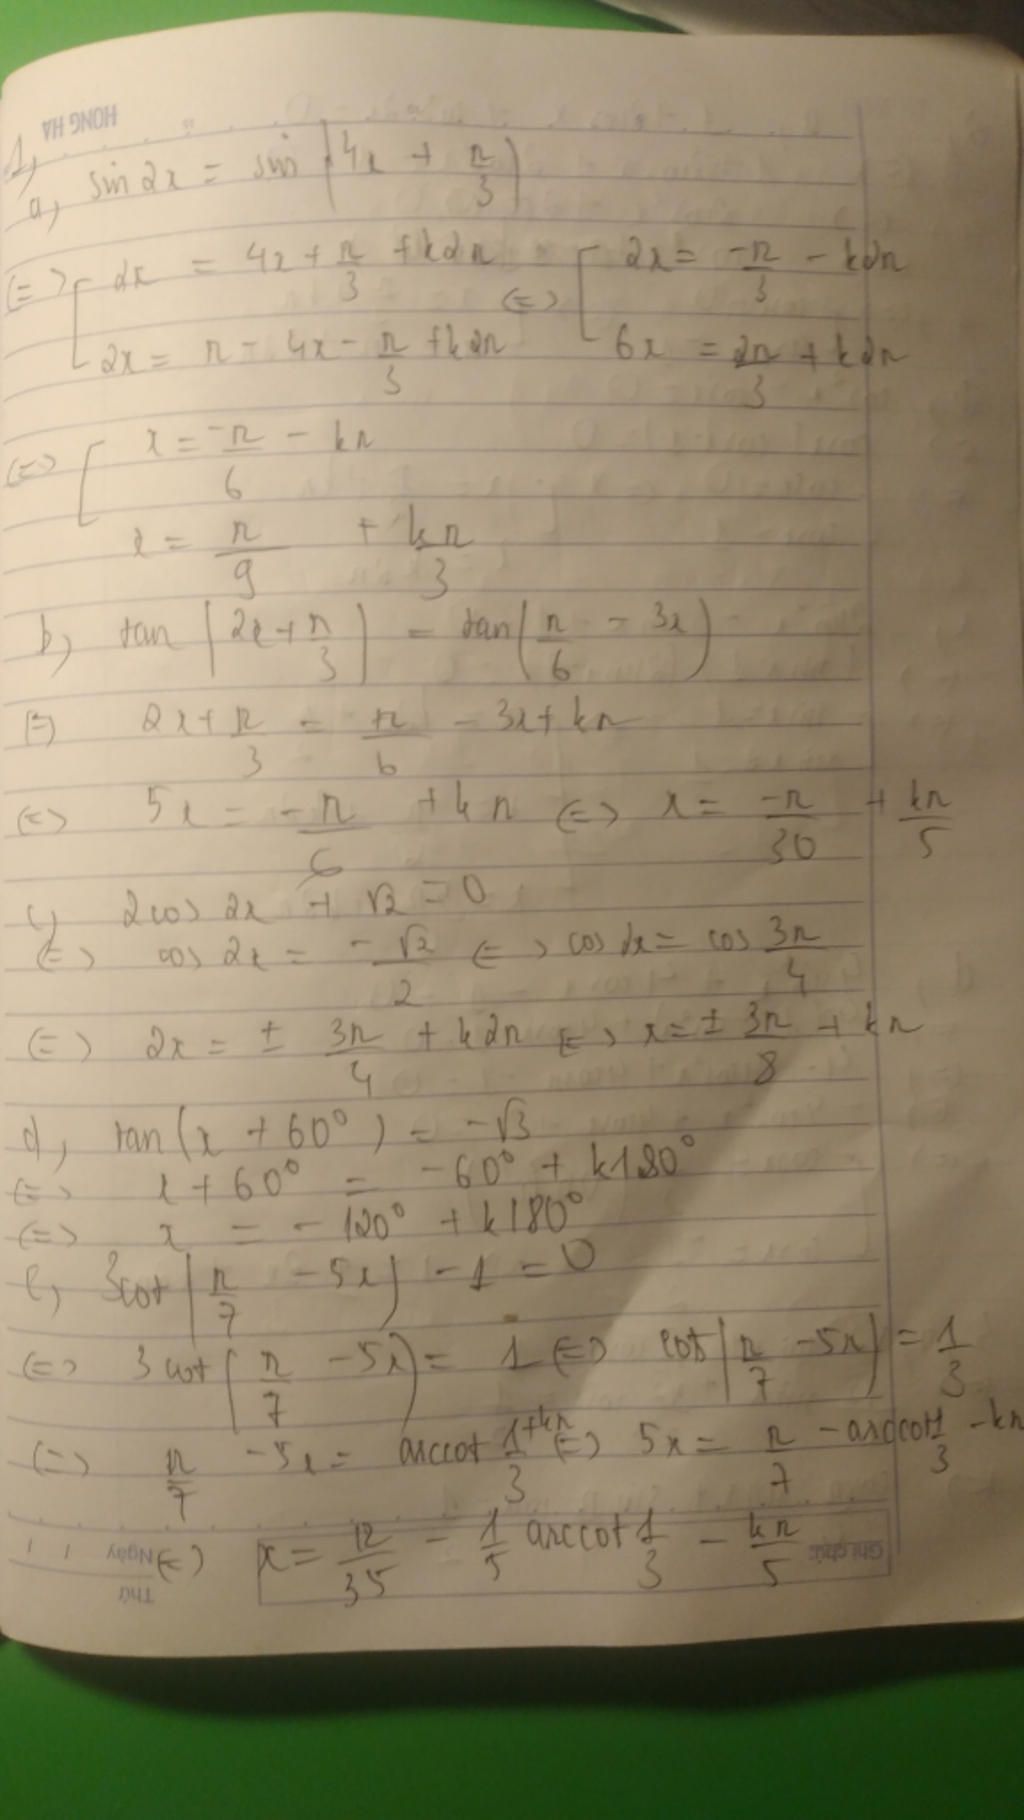 HONG HA
1,
a, sin 2x = sin (4x + π/3)
<=> [ 2x = 4x + π/3 + k2π <=> [ 2x = -π/3 - k2π
2x = π - 4x - π/3 + k2π 6x = 2π/3 + k2π
<=> [ x = -π/6 - kπ
x = π/9 + kπ/3
b, tan (2x + π/3) = tan (π/6 - 3x)
<=> 2x + π/3 = π/6 - 3x + kπ
<=> 5x = -π/6 + kπ <=> x = -π/30 + kπ/5
c, 2cos 2x + √2 = 0
<=> cos 2x = -√2/2 <=> cos 2x = cos 3π/4
<=> 2x = ± 3π/4 + k2π <=> x = ± 3π/8 + kπ
d, tan (x + 60°) = -√3
<=> x + 60° = -60° + k180°
<=> x = -120° + k180°
e, 3cot (π/7 - 5x) - 1 = 0
<=> 3 cot (π/7 - 5x) = 1 <=> cot (π/7 - 5x) = 1/3
<=> π/7 - 5x = arccot 1/3 + kπ <=> 5x = π/7 - arccot 1/3 - kπ
<=> x = π/35 - 1/5 arccot 1/3 - kπ/5
Ghi chú:
Ngày / /
Thứ